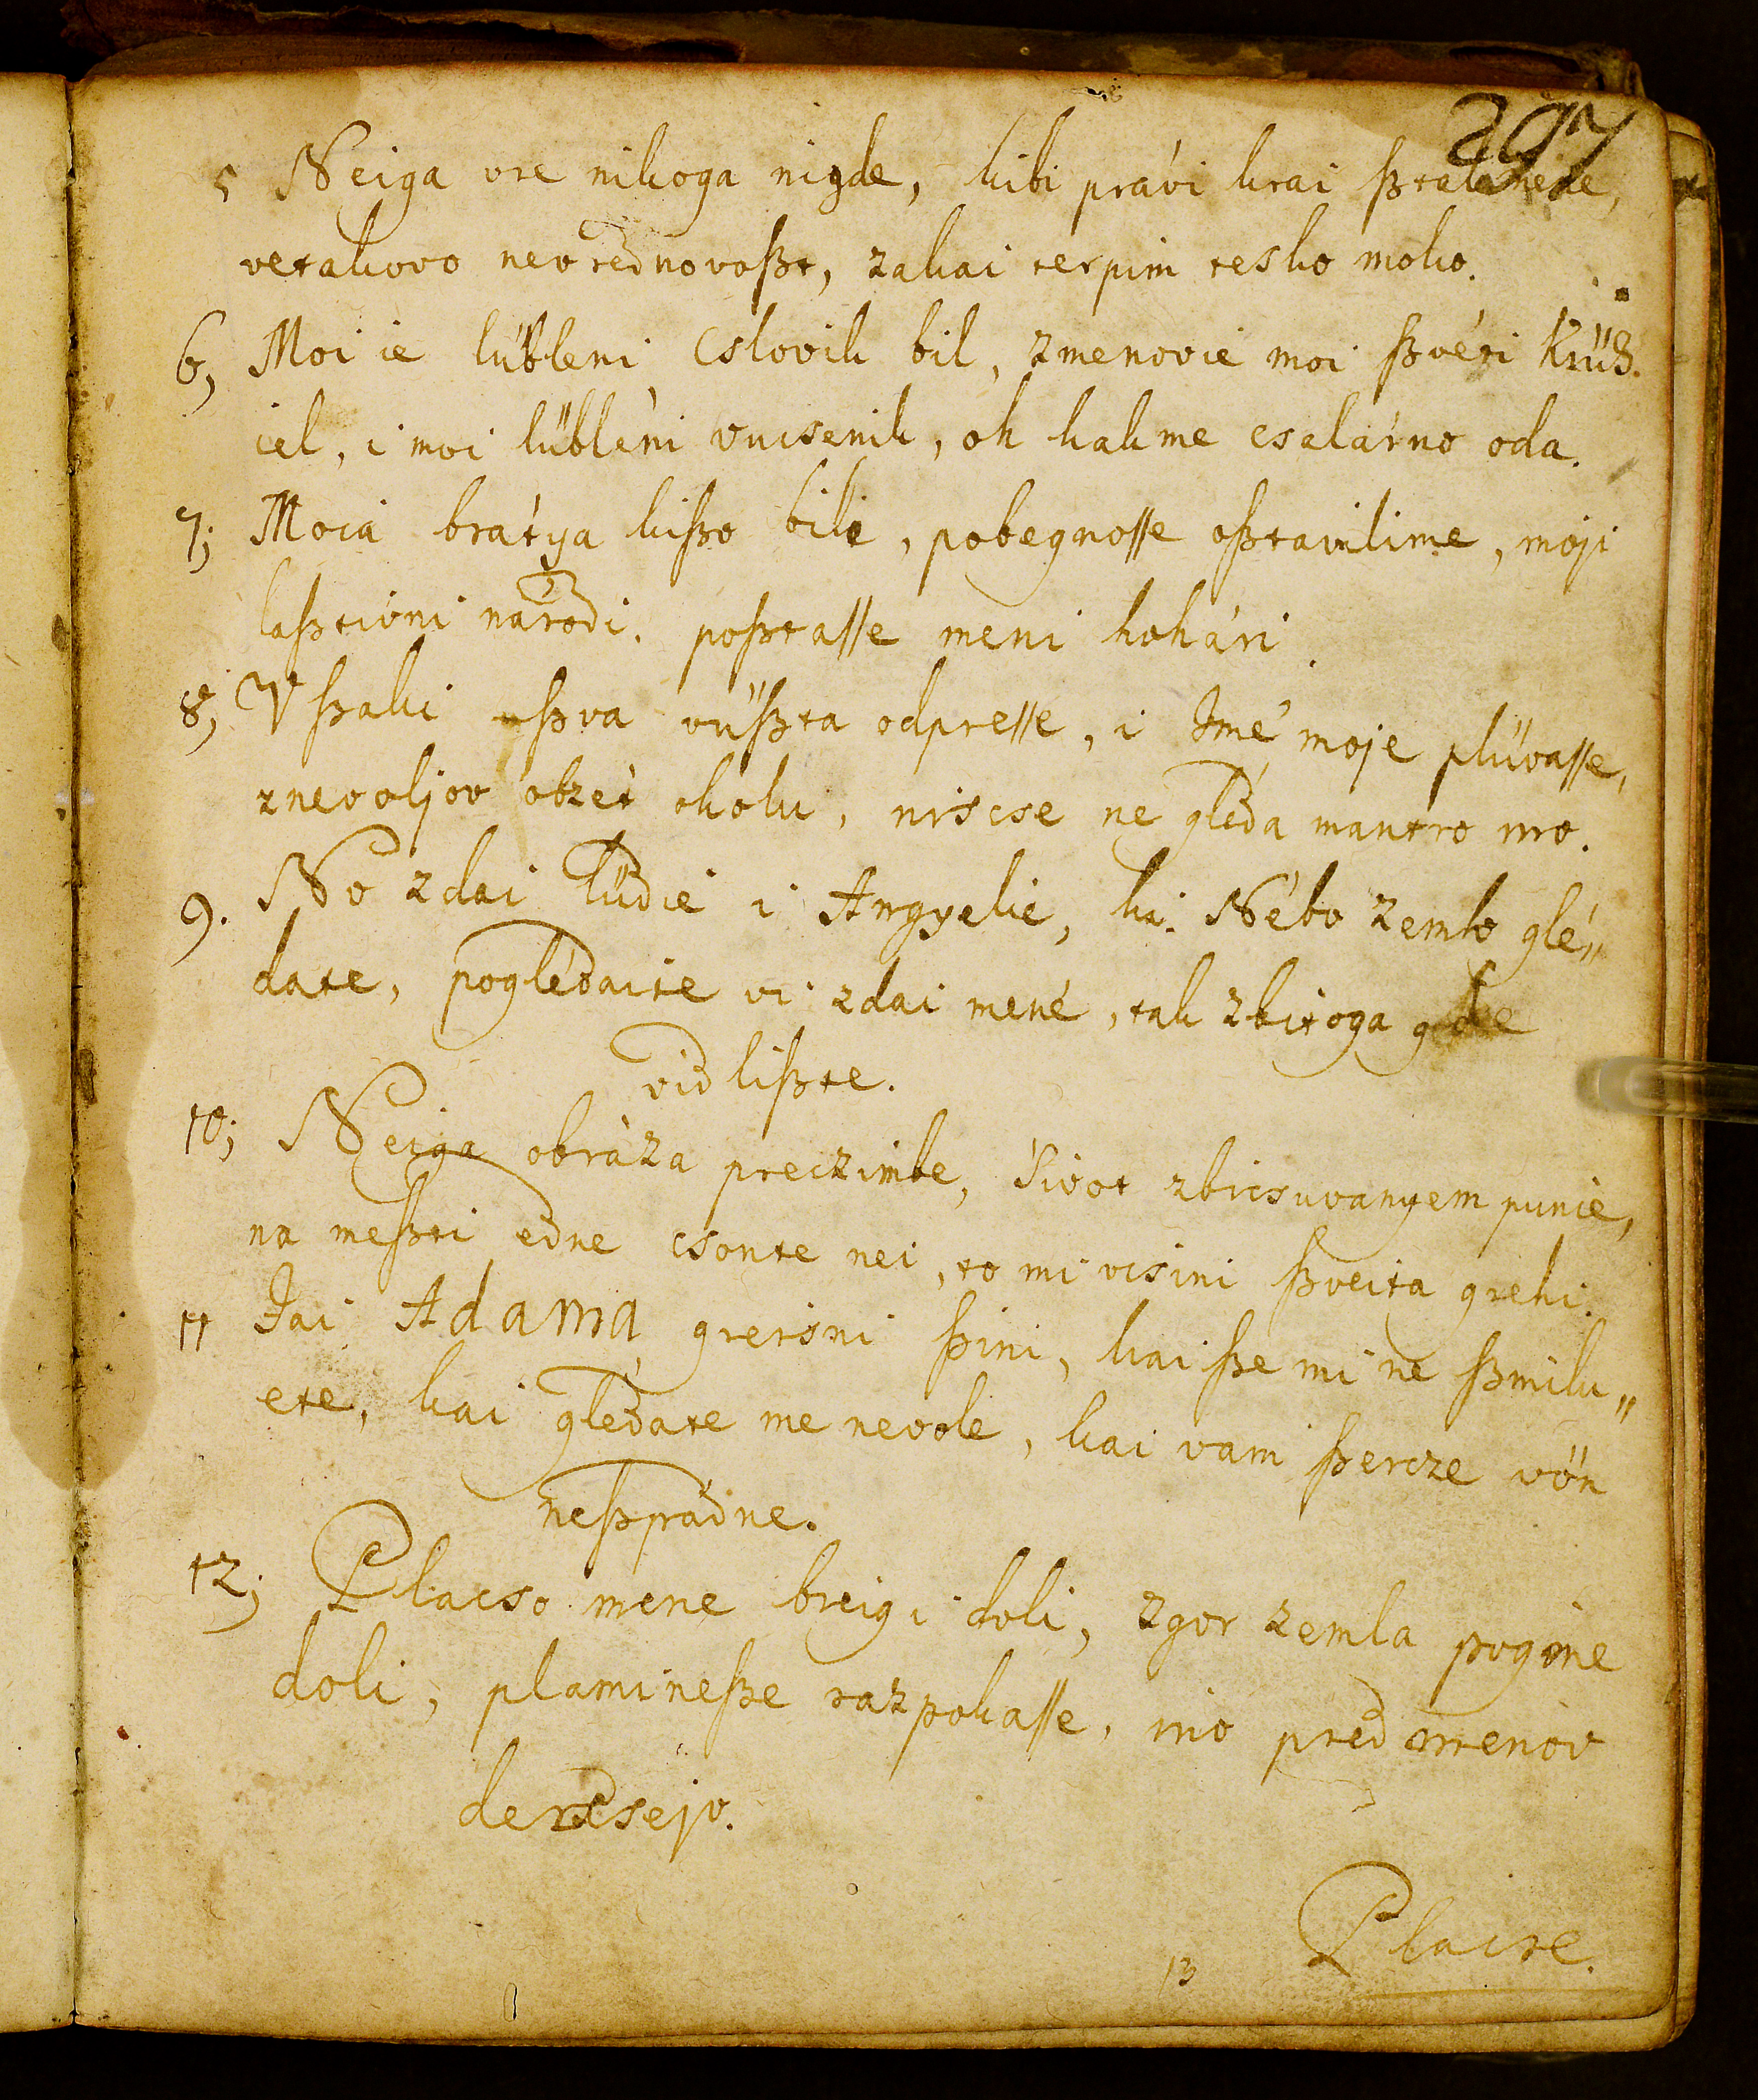 297
5 Neiga vre nikoga nigde, kibi právi krai ßtal mene,
vetakovo nevrednovoßt, zakai terpim tesko moko.
6, Moi ie lübleni Cslovik bil, zmenovie moi ßvéti Krüß.
iel, i moi lübléni vucsenik, oh kakme csalárno oda.
7; Moia brátya kißo bili, pobegnosse oßtavilime, moji
laßtivni národi, poßtasse meni hohári.
8; Vßaki ßva vüßta odpresse, i Imé moje plüvasse,
znevoljov obzét okolu, niscse ne gléda mantro mo.
9. No zdai lüdié i Angyelie, ki Nébo zemlo glé„
date, poglédaite vi zdai mené, tak zbitoga gde
vidlißte.
10; Neiga obráza preczimbe, Sivot zbicsuvanyem punie,
na meßti edne csonte nei, to mi vcsini ßveita grehi.
11 Jai Adama greisni ßini, kai ße mi ne ßmilu„
ete, kai glédate me nevole, kai vam ßercze vön
neßpádne.
12; Placso mene breig i doli, zgor zemla pogine
doli, plamineße razpokasse, mió pred menov
dercsejo.
13 Placse.